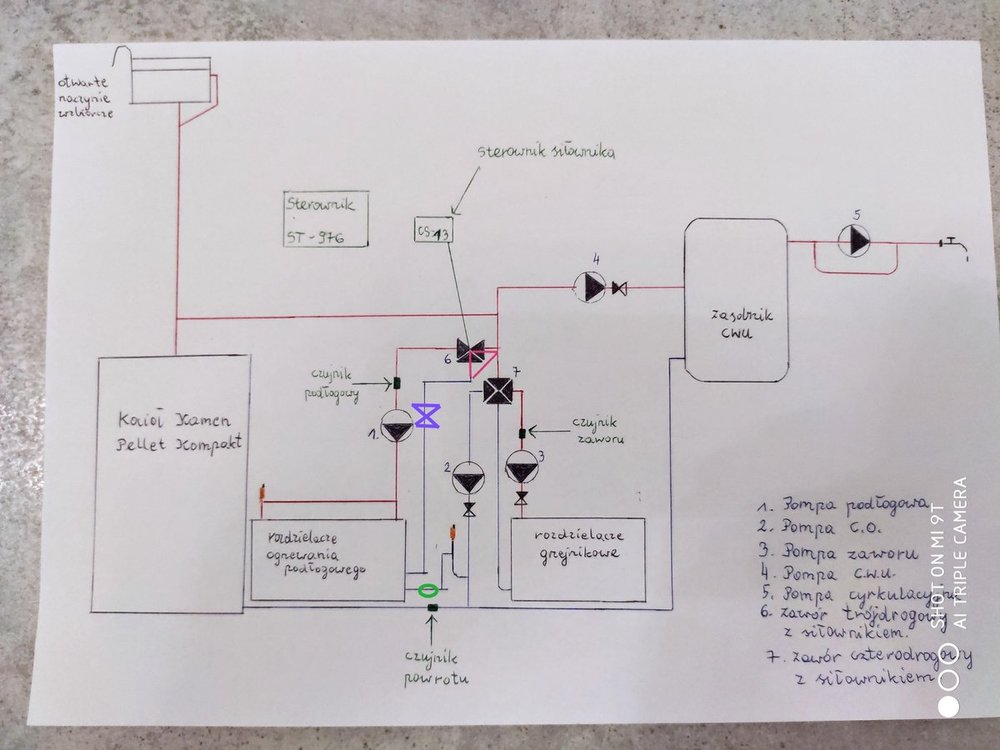 otwarte
naczynie
wzbiorcze
Sterownik siłownika
Sterownik
ST-976
CS-13
5
4
zasobnik
CWU
6
7
czujnik
podłogowy
Kocioł Kamen
Pellet Kompakt
1.
czujnik
zaworu
2
3
rozdzielacze
ogrzewania
podłogowego
rozdzielacze
grzejnikowe
czujnik
powrotu
1. Pompa podłogowa
2. Pompa C.O.
3. Pompa zaworu
4. Pompa c.w.u.
5. Pompa cyrkulacyjna
6. zawór trójdrogowy
z siłownikiem.
7. zawór czterodrogowy
z siłownikiem
SHOT ON MI 9T
AI TRIPLE CAMERA